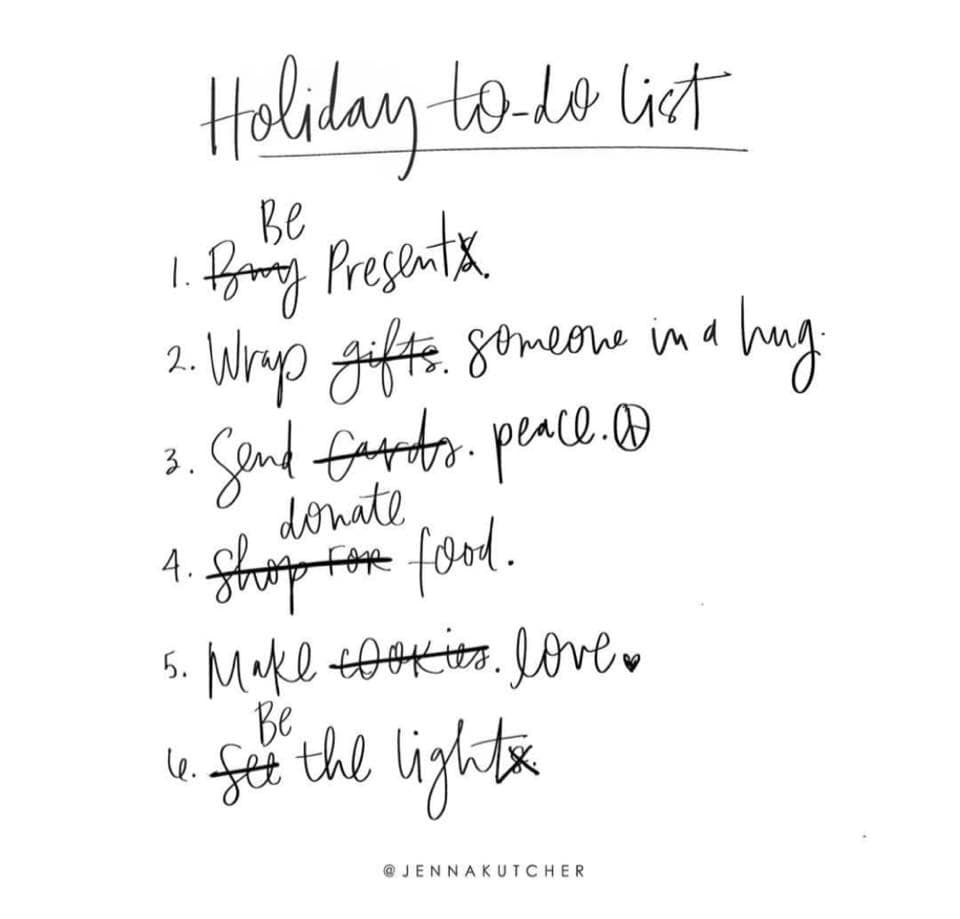 Holiday to-do list
Be
1. Buy Presents.
2. Wrap gifts. someone in a hug.
3. Send Cards. peace.☮
donate
4. Shop For food.
5. Make cookies. love.♥
Be
6. See the lights.
@JENNAKUTCHER